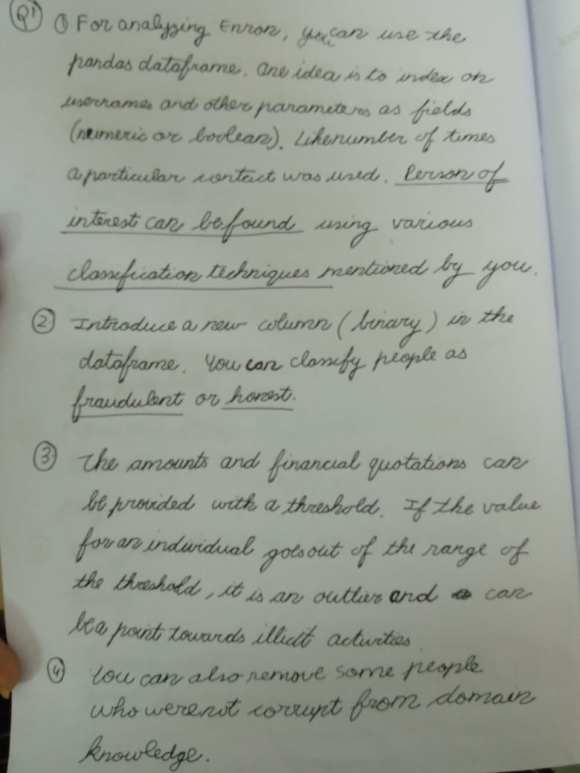 Q1 ① For analyzing Enron, you can use the
pandas dataframe. One idea is to index on
usernames and other parameters as fields
(numeric or boolean). Like number of times
a particular contact was used. Person of
interest can be found using various
classification techniques mentioned by you.
② Introduce a new column (binary) in the
dataframe. You can classify people as
fraudulent or honest.
③ The amounts and financial quotations can
be provided with a threshold. If the value
for an individual goes out of the range of
the threshold, it is an outlier and can
be a point towards illicit activities
④ You can also remove some people
who were not corrupt from domain
knowledge.